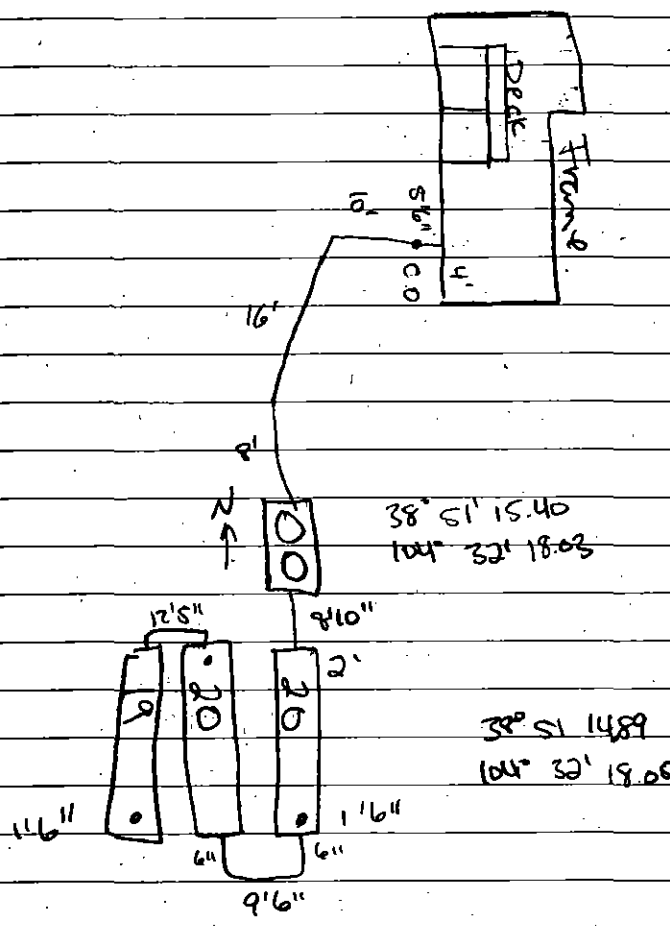 Deck
Frame
5'6"
10'
C.O
4'
16'
8'
N
38° 51' 15.40
104° 32' 18.03
8'10"
12'5"
2'
9
20
20
38° 51 14.89
104° 32' 18.06
1'6"
1'6"
6"
6"
9'6"